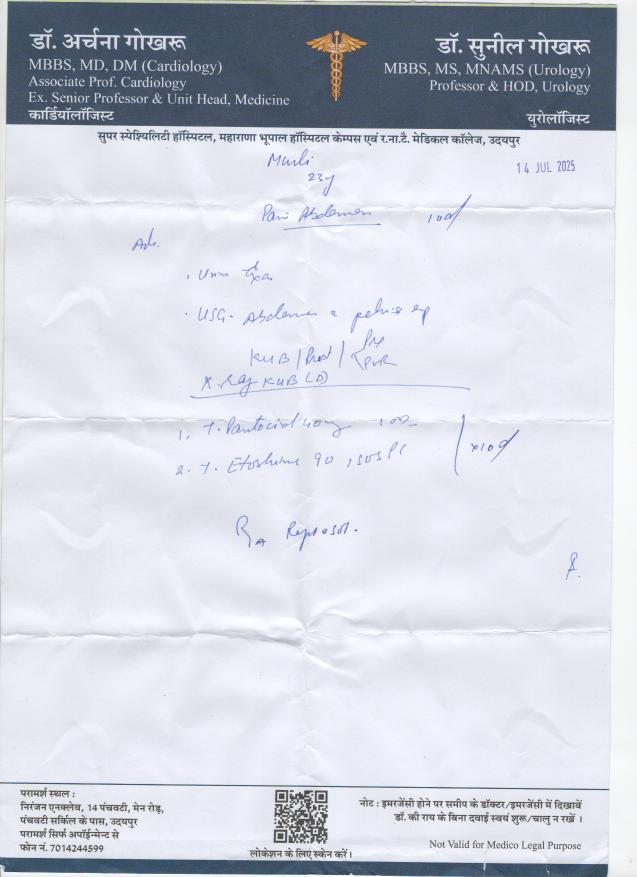 डॉ. अर्चना गोखरू
MBBS, MD, DM (Cardiology)
Associate Prof. Cardiology
Ex. Senior Professor & Unit Head, Medicine
कार्डियॉलॉजिस्ट
डॉ. सुनील गोखरू
MBBS, MS, MNAMS (Urology)
Professor & HOD, Urology
युरोलॉजिस्ट
सुपर स्पेश्यिलिटी हॉस्पिटल, महाराणा भूपाल हॉस्पिटल केम्पस एवं र.ना.टै. मेडिकल कॉलेज, उदयपुर
14 JUL 2025
23y
Pain Abdomen 10d
Adv.
USG. Abdomen pelvis
KUB / Prost / Pre
PVR
X.Ray KUB
1. T. Pantocid 40mg
2. T. Etoshine 90 SOS
x10d
परामर्श स्थल :
निरंजन एनक्लेव, 14 पंचवटी, मेन रोड़,
पंचवटी सर्किल के पास, उदयपुर
परामर्श सिर्फ अपॉईन्मेन्ट से
फोन नं. 7014244599
लोकेशन के लिए स्केन करें।
नोट : इमरजेंसी होने पर समीप के डॉक्टर/इमरजेंसी में दिखावें
डॉ. की राय के बिना दवाई स्वयं शुरू/चालु न रखें ।
Not Valid for Medico Legal Purpose